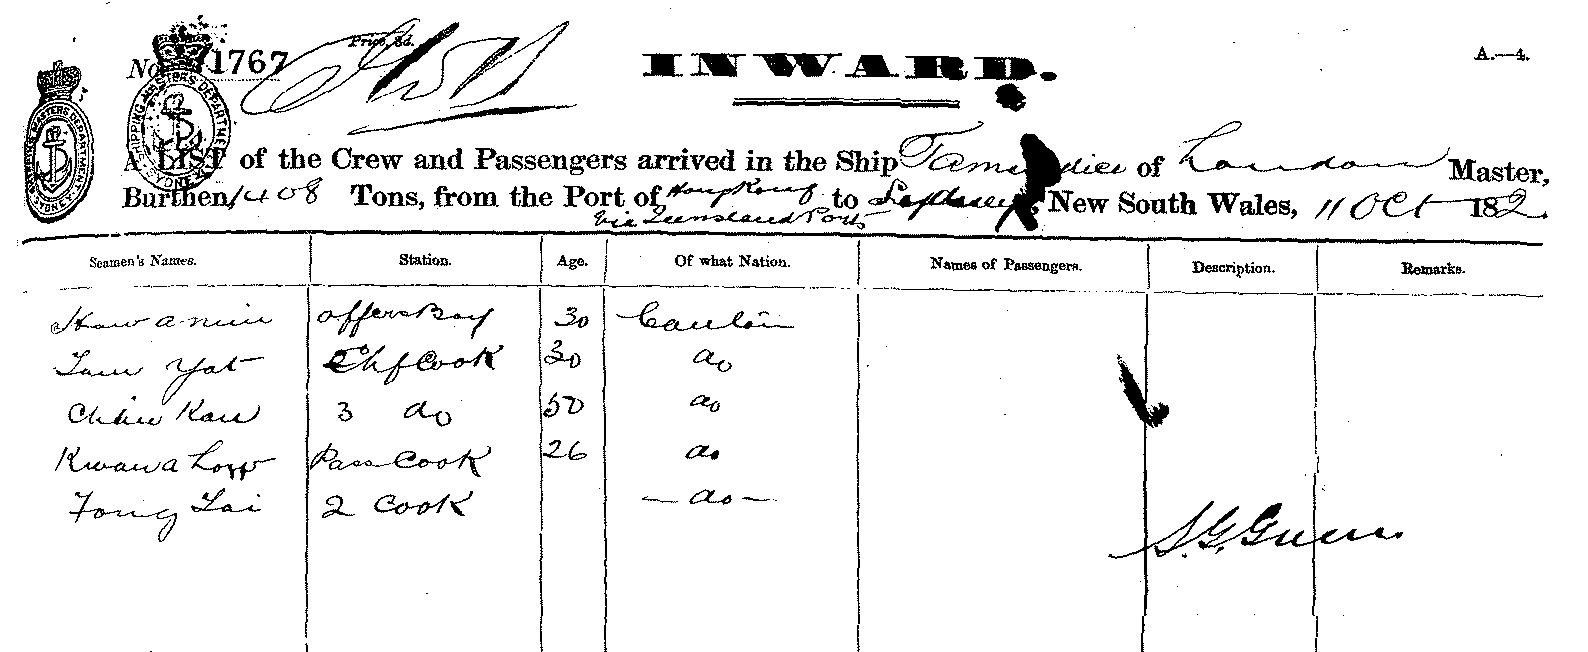 No 1767 Price, 2d. INWARD. A.—4.
SHIPPING MASTERS DEPARTMENT SYDNEY
A LIST of the Crew and Passengers arrived in the Ship of London Master,
Burthen 1408 Tons, from the Port of Hong Kong to Sydney, New South Wales, 11 Oct 182.
Via Queensland Ports
Seamen's Names. Station. Age. Of what Nation. Names of Passengers. Description. Remarks.
30 Canton
Yat Chf Cook 30 do
Kau 3 do 50 do
Pass Cook 26 do
Fong Tai 2 Cook — do —